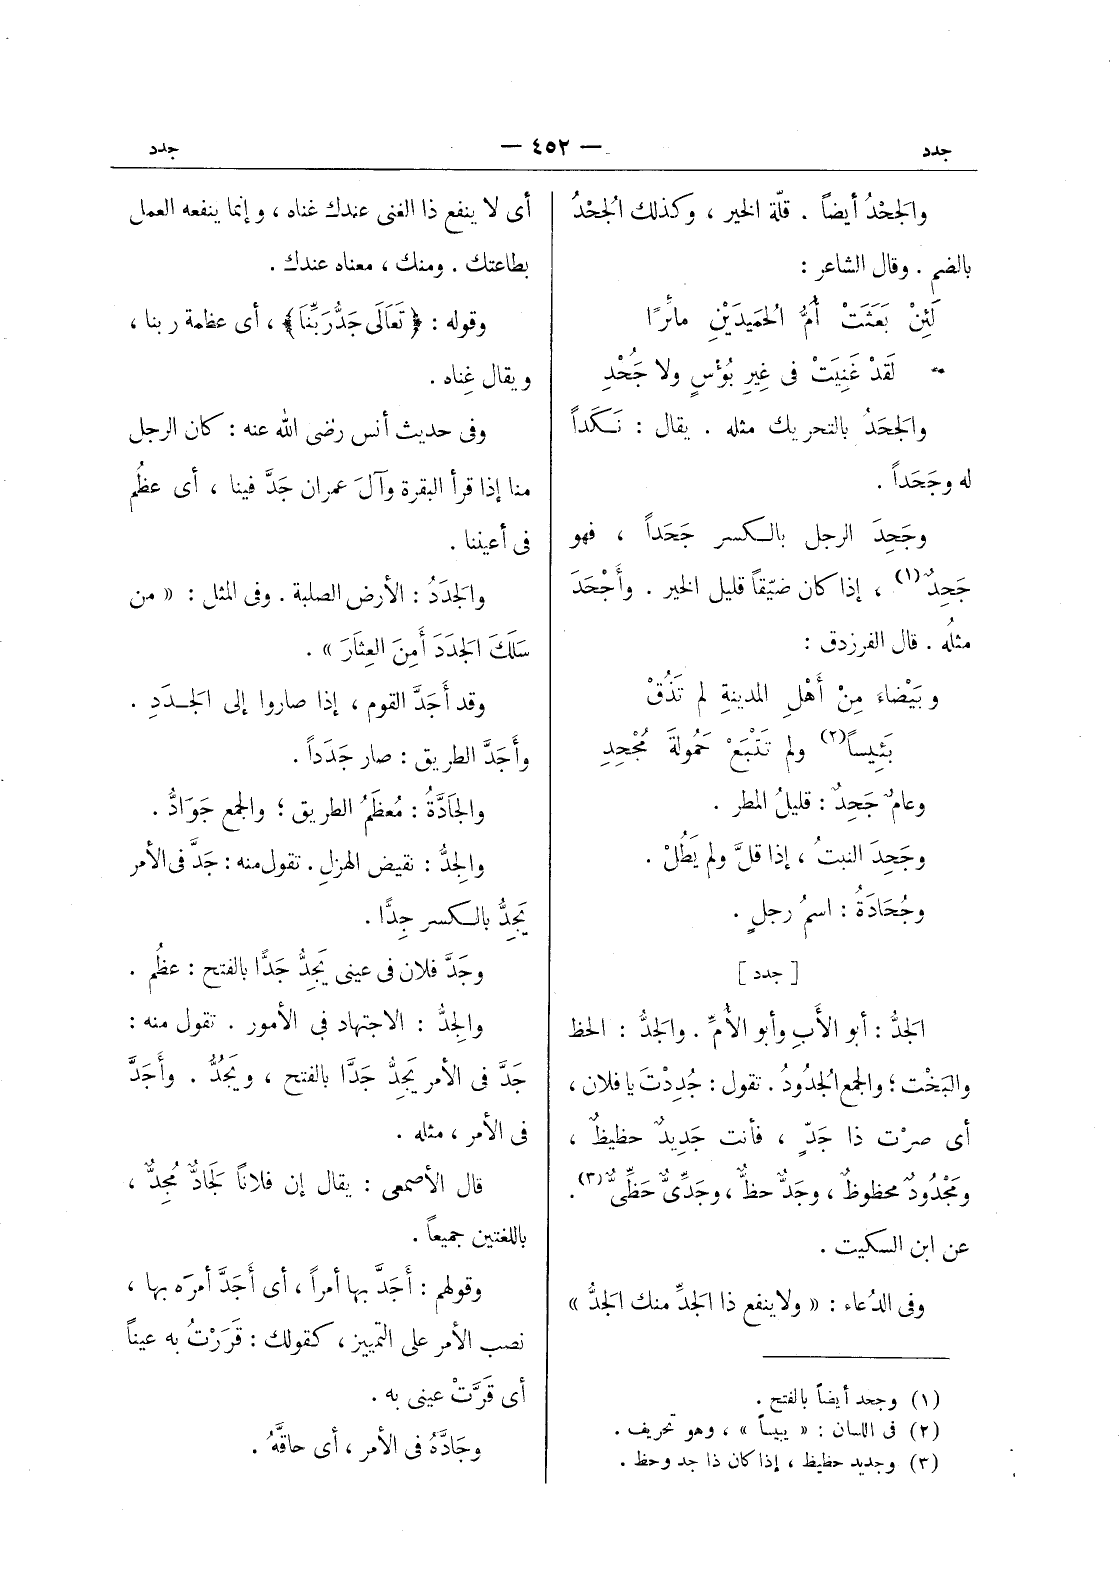 جدد
— ٤٥٢ —
جدد
والجَحْدُ أيضاً . قلّة الخير ، وكذلك الجُحْدُ
بالضم . وقال الشاعر :
لَئِنْ بَعَثَتْ أُمُّ الحُمَيدَيْنِ مائرًا
لَقَدْ غَنِيَتْ فى غيرِ بُؤْسٍ ولا جُحْدِ
والجَحَدُ بالتحريك مثله . يقال : نَكَداً
له وجَحَداً .
وجَحِدَ الرجل بالكسر جَحَداً ، فهو
جَحِدٌ(١) ، إذا كان ضيّقاً قليل الخير . وأَجْحَدَ
مثلُه . قال الفرزدق :
وبَيْضاءَ مِنْ أَهْلِ المدينةِ لم تَذُقْ
بَئِيساً(٢) ولم تَتْبَعْ حَمُولَةَ مُجْحِدِ
وعامٌ جَحِدٌ : قليلُ المطر .
وجَحِدَ النبتُ ، إذا قلَّ ولم يَطُلْ .
وجُحَادَةُ : اسمُ رجلٍ .
[ جدد ]
الجَدُّ : أبو الأَبِ وأبو الأُمِّ . والجَدُّ : الحظ
والبَخْت ؛ والجمع الجُدُودُ . تقول : جُدِدْتَ يا فلان ،
أى صرْت ذا جَدٍّ ، فأنت جَدِيدٌ حظيظٌ ،
ومَجْدُودٌ محظوظٌ ، وجَدٌّ حظٌّ ، وجَدِّىٌّ حَظِّىٌّ(٣) .
عن ابن السكيت .
وفى الدُعاء : « ولا ينفع ذا الجَدِّ منك الجَدُّ »
(١) وجحد أيضاً بالفتح .
(٢) فى اللسان : « يبيساً » ، وهو تحريف .
(٣) وجديد حظيظ ، إذا كان ذا جد وحظ .
أى لا ينفع ذا الغنى عندك غناه ، وإنما ينفعه العمل
بطاعتك . ومنك ، معناه عندك .
وقوله : ﴿ تَعَالَى جَدُّ رَبِّنَا ﴾ ، أى عظمة ربنا ،
ويقال غِناه .
وفى حديث أنس رضى الله عنه : كان الرجل
منا إذا قرأ البقرة وآلَ عمران جَدَّ فينا ، أى عظُم
فى أعيننا .
والجَدَدُ : الأرض الصلبة . وفى المثل : « من
سَلَكَ الجَدَدَ أَمِنَ العِثَارَ » .
وقد أَجَدَّ القوم ، إذا صاروا إلى الجَدَدِ .
وأَجَدَّ الطريق : صار جَدَداً .
والجَادَّةُ : مُعظَمُ الطريق ؛ والجمع جَوَادُّ .
والجِدُّ : نقيض الهزلِ . تقول منه : جَدَّ فى الأمر
يَجِدُّ بالكسر جِدًّا .
وجَدَّ فلان فى عينى يَجِدُّ جَدًّا بالفتح : عظُم .
والجِدُّ : الاجتهاد فى الأمور . تقول منه :
جَدَّ فى الأمر يَجِدُّ جَدًّا بالفتح ، ويَجُدُّ . وأَجَدَّ
فى الأمر ، مثله .
قال الأصمعى : يقال إن فلاناً لَجَادٌّ مُجِدٌّ ،
باللغتين جميعاً .
وقولهم : أَجَدَّ بها أمراً ، أى أَجَدَّ أمرَه بها ،
نصب الأمر على التمييز ، كقولك : قَرَرْتُ به عيناً
أى قَرَّتْ عينى به .
وجَادَّهُ فى الأمر ، أى حاقَّهُ .